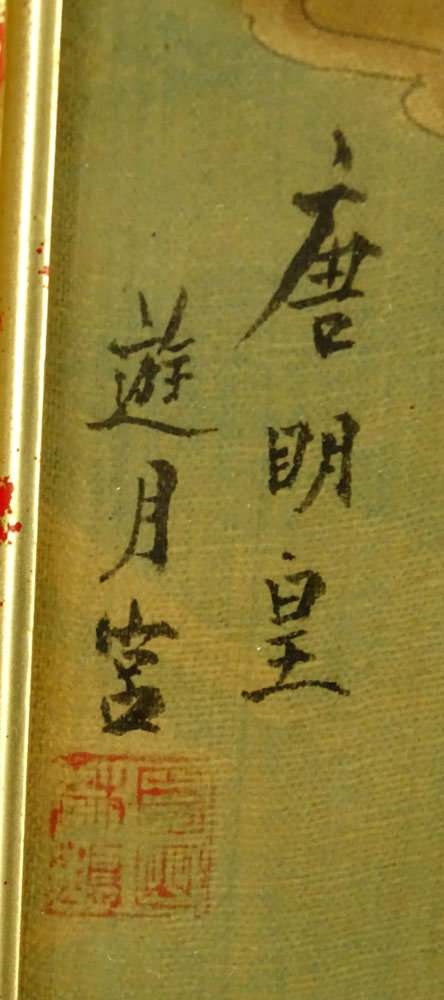 唐明皇
遊月宮